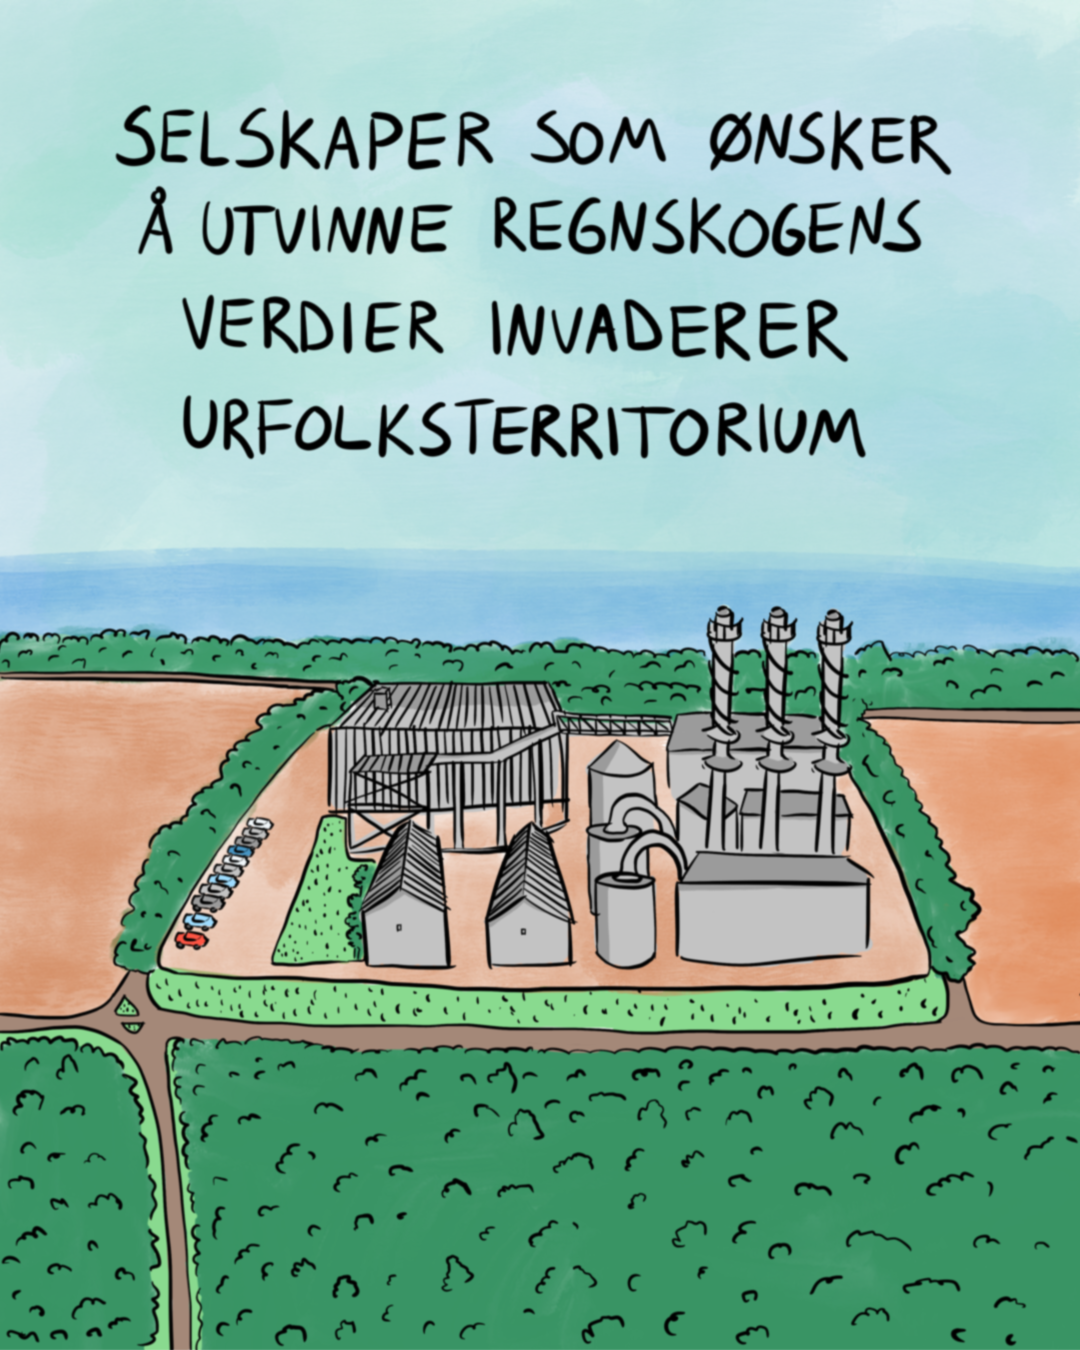 SELSKAPER SOM ØNSKER
Å UTVINNE REGNSKOGENS
VERDIER INVADERER
URFOLKSTERRITORIUM